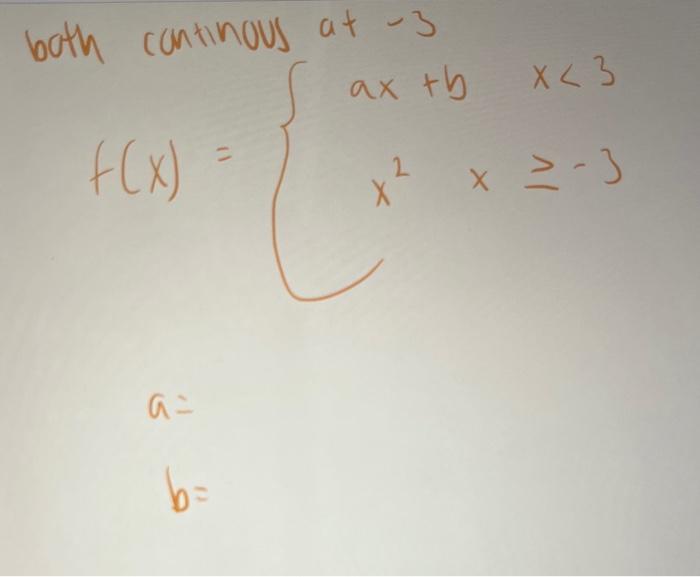 both continous at -3
ax + b x < 3
f(x) =
x² x ≥ -3
a=
b=